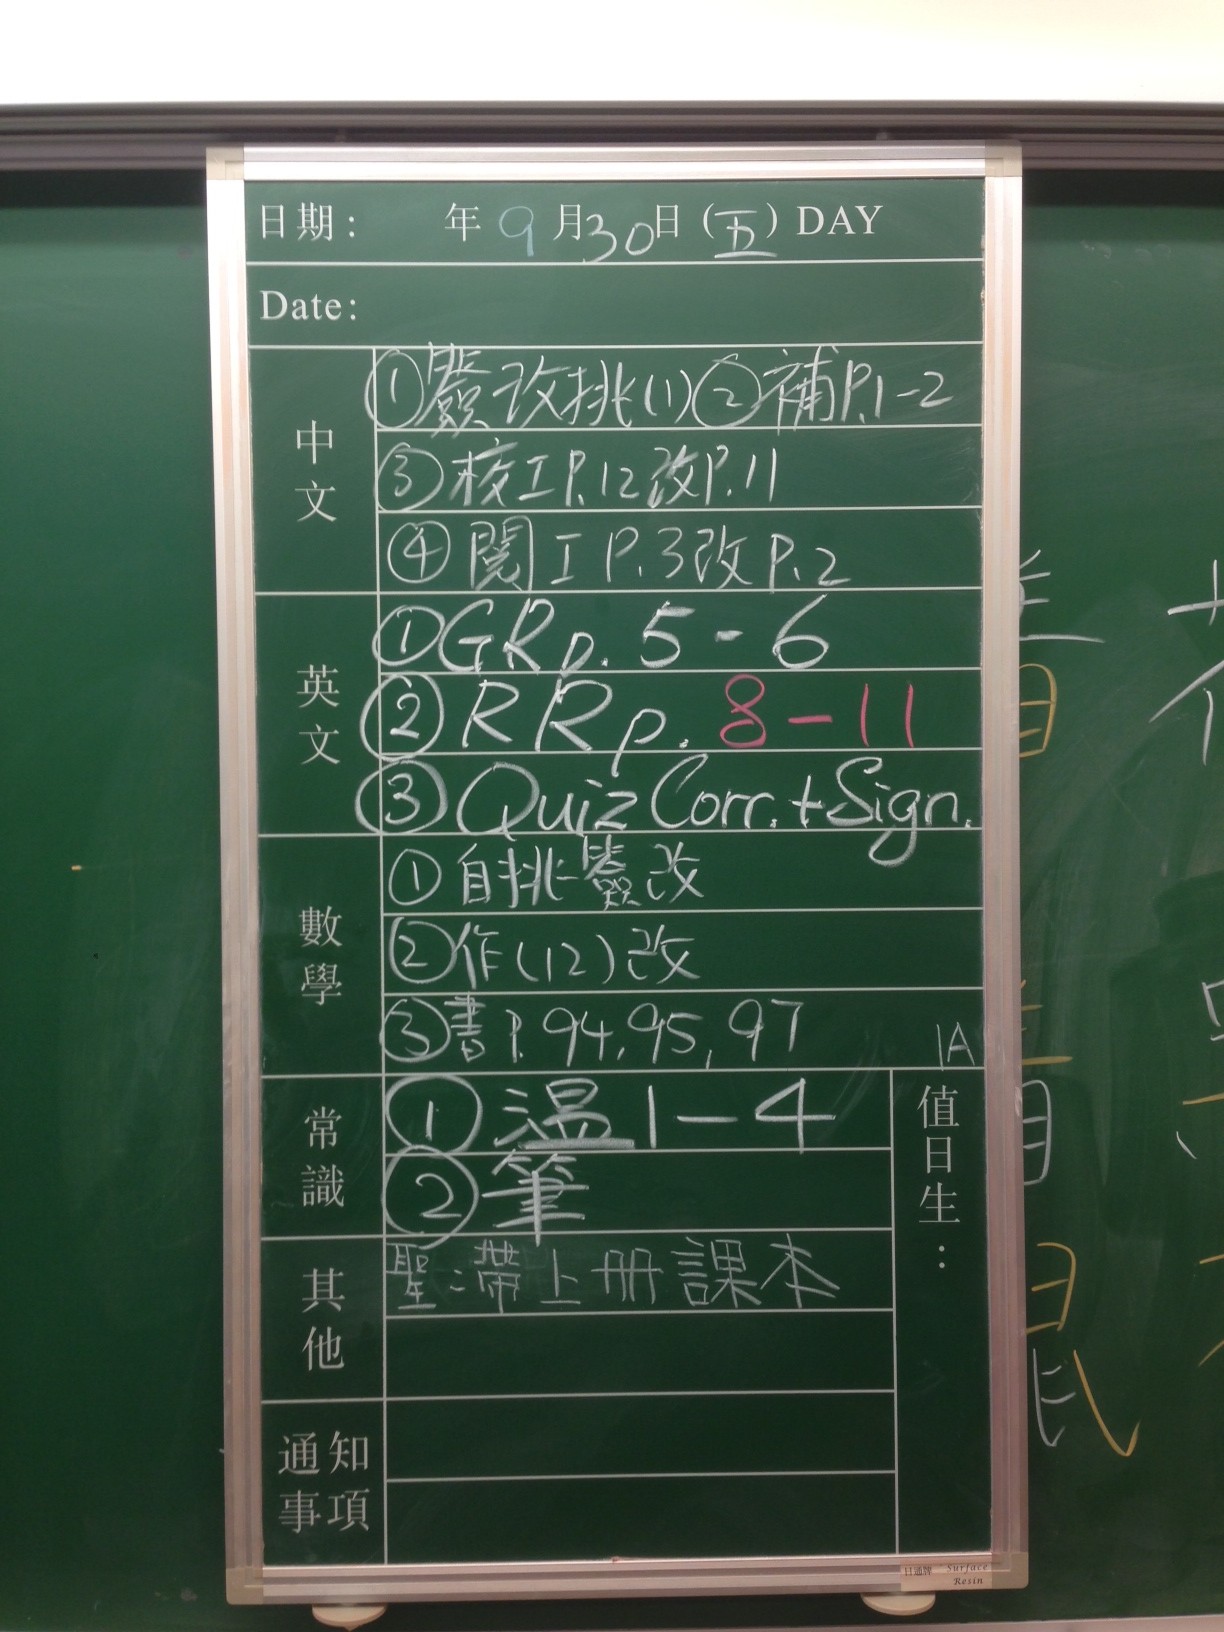 日期： 年 9 月 30 日（五）DAY
Date:
中文
①癈改挑(1)②補P.1-2
③核工P.12改P.11
④閱工P.3改P.2
英文
①GRp. 5-6
②RRp. 8-11
③Quiz Corr.+Sign.
數學
①自挑 改
②作(12)改
③書P.94,95,97
1A
常識
①溫1-4
②筆
值日生：
其他
聖:帶上冊課本
通知事項
日通牌 Surface
Resin